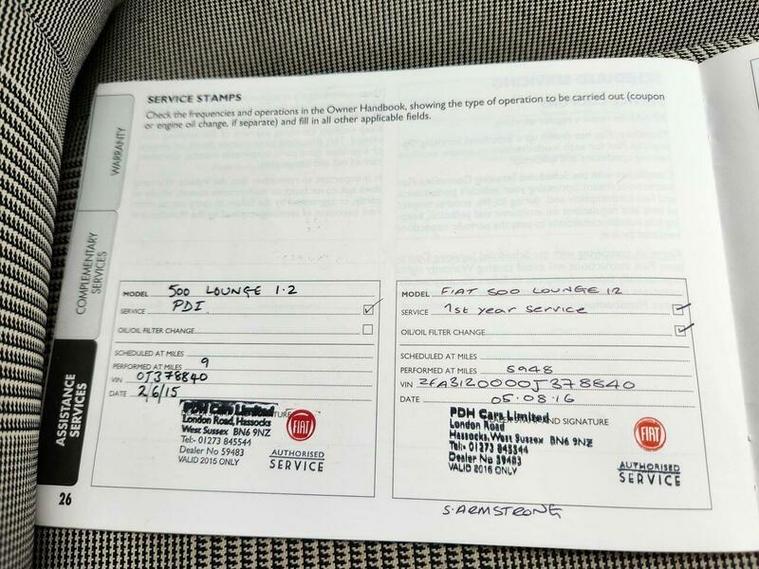 SERVICE STAMPS
Check the frequencies and operations in the Owner Handbook, showing the type of operation to be carried out (coupon
or engine oil change, if separate) and fill in all other applicable fields.
WARRANTY
COMPLEMENTARY
SERVICES
ASSISTANCE
SERVICES
MODEL 500 LOUNGE 1.2
SERVICE PDI
OIL/OIL FILTER CHANGE
SCHEDULED AT MILES
PERFORMED AT MILES 9
VIN 0J378840
DATE 2/6/15
PDH Cars Limited
London Road, Hassocks
West Sussex BN6 9NZ
Tel:- 01273 845544
Dealer No 59483
VALID 2015 ONLY
FIAT
AUTHORISED
SERVICE
MODEL FIAT 500 LOUNGE 12
SERVICE 1st year service
OIL/OIL FILTER CHANGE
SCHEDULED AT MILES
PERFORMED AT MILES 5948
VIN ZFA3120000J378840
DATE 05.08.16
AND SIGNATURE
PDH Cars Limited
London Road
Hassocks, West Sussex BN6 9NZ
Tel:- 01273 845544
Dealer No 59483
VALID 2016 ONLY
FIAT
AUTHORISED
SERVICE
S. ARMSTRONG
26